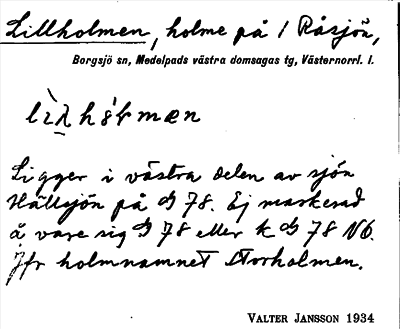 Lillholmen, holme på / Råsjön,
Borgsjö sn, Medelpads västra domsagas tg, Västernorrl. l.
Ligger i västra delen av sjön
Hällsjön på 78. Ej markerad
å vare sig 78 eller k 78 NÖ.
Jfr holmnamnet Storholmen.
VALTER JANSSON 1934